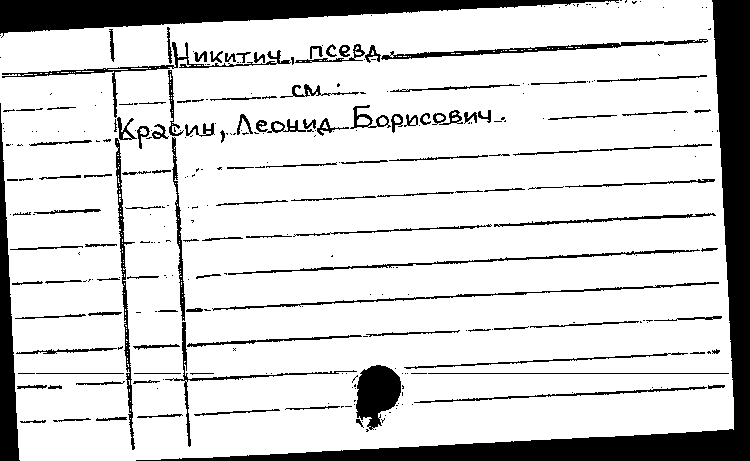 Никитич, псевд.
см.:
Красин, Леонид Борисович.